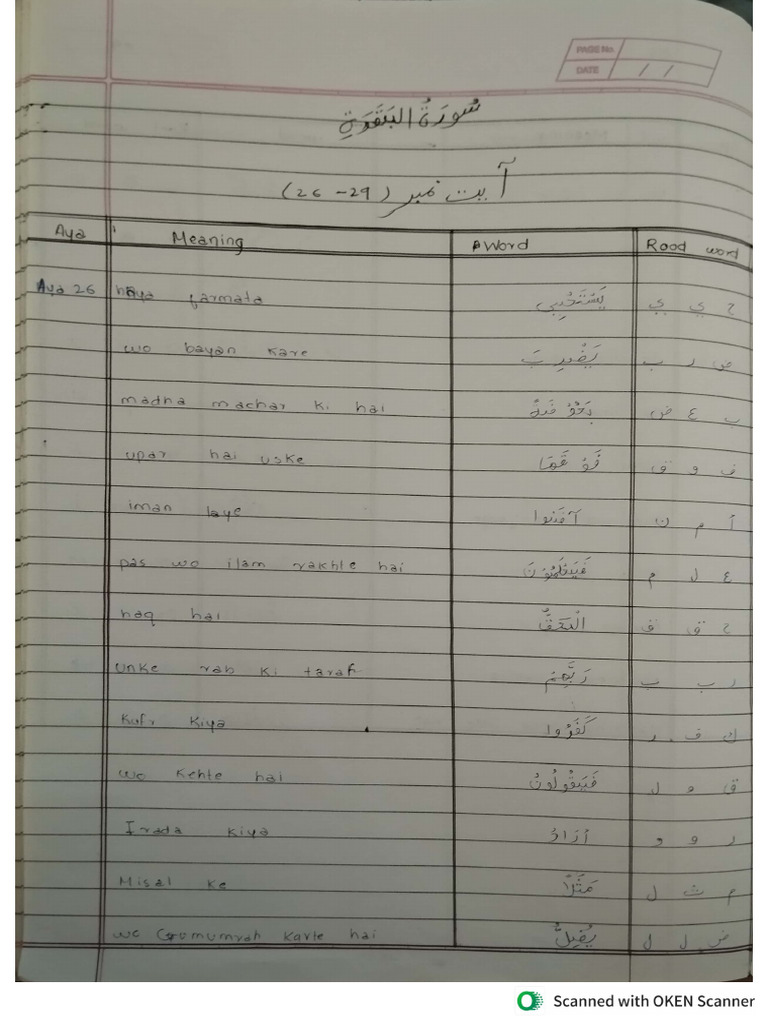 PAGE No.
DATE / /
سُورَةُ البَقَرَةِ
آیت نمبر (26-29)
Aya Meaning Word Rood word
Aya 26 haya farmata يَسْتَحْيِي ح ي ي
wo bayan kare يَضْرِبَ ض ر ب
madha machar ki hai بَعُوْضَةً ب ع ض
upar hai uske فَوْقَهَا ف و ق
iman laye آمَنُوا أ م ن
pas wo ilam rakhte hai فَيَعْلَمُوْنَ ع ل م
haq hai الْحَقُّ ح ق ق
unke rab ki taraf رَبِّهِمْ ر ب ب
Kufr Kiya كَفَرُوا ك ف ر
wo Kehte hai فَيَقُولُونَ ق و ل
Irada Kiya أرَادَ ر و د
Misal ke مَثَلًا م ث ل
wo Gumumrah Karte hai يُضِلُّ ض ل ل
Scanned with OKEN Scanner